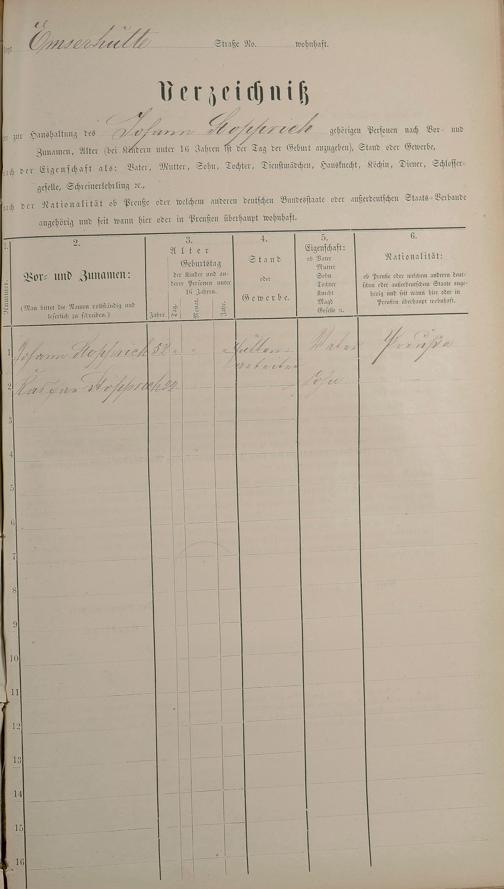 Emserhütte Straße No. wohnhaft.
Verzeichniß
zur Haushaltung des Johann Kopprich gehörigen Personen nach Vor- und
Zunamen, Alter (bei Kindern unter 16 Jahren ist der Tag der Geburt anzugeben), Stand oder Gewerbe,
nach der Eigenschaft als: Vater, Mutter, Sohn, Tochter, Dienstmädchen, Hausknecht, Köchin, Diener, Schlosser-
geselle, Schreinerlehrling ꝛc.,
nach der Nationalität ob Preuße oder welchem anderen deutschen Bundesstaate oder außerdeutschen Staats-Verbande
angehörig und seit wann hier oder in Preußen überhaupt wohnhaft.
1.
Nummer.
2.
Vor- und Zunamen:
(Man bittet die Namen vollständig und
leserlich zu schreiben.)
3.
Alter
Geburtstag
der Kinder und an-
derer Personen unter
16 Jahren.
Jahre. Tag. Monat. Jahr.
4.
Stand
oder
Gewerbe.
5.
Eigenschaft:
ob Vater
Mutter
Sohn
Tochter
Knecht
Magd
Geselle ꝛc.
6.
Nationalität:
ob Preuße oder welchem anderen deut-
schen oder außerdeutschen Staate ange-
hörig und seit wann hier oder in
Preußen überhaupt wohnhaft.
1 Johann Kopprich 52 Hütten- Vater Preuße
arbeiter
2 Kaspar Kopprich 22 Sohn
3
4
5
6
7
8
9
10
11
12
13
14
15
16